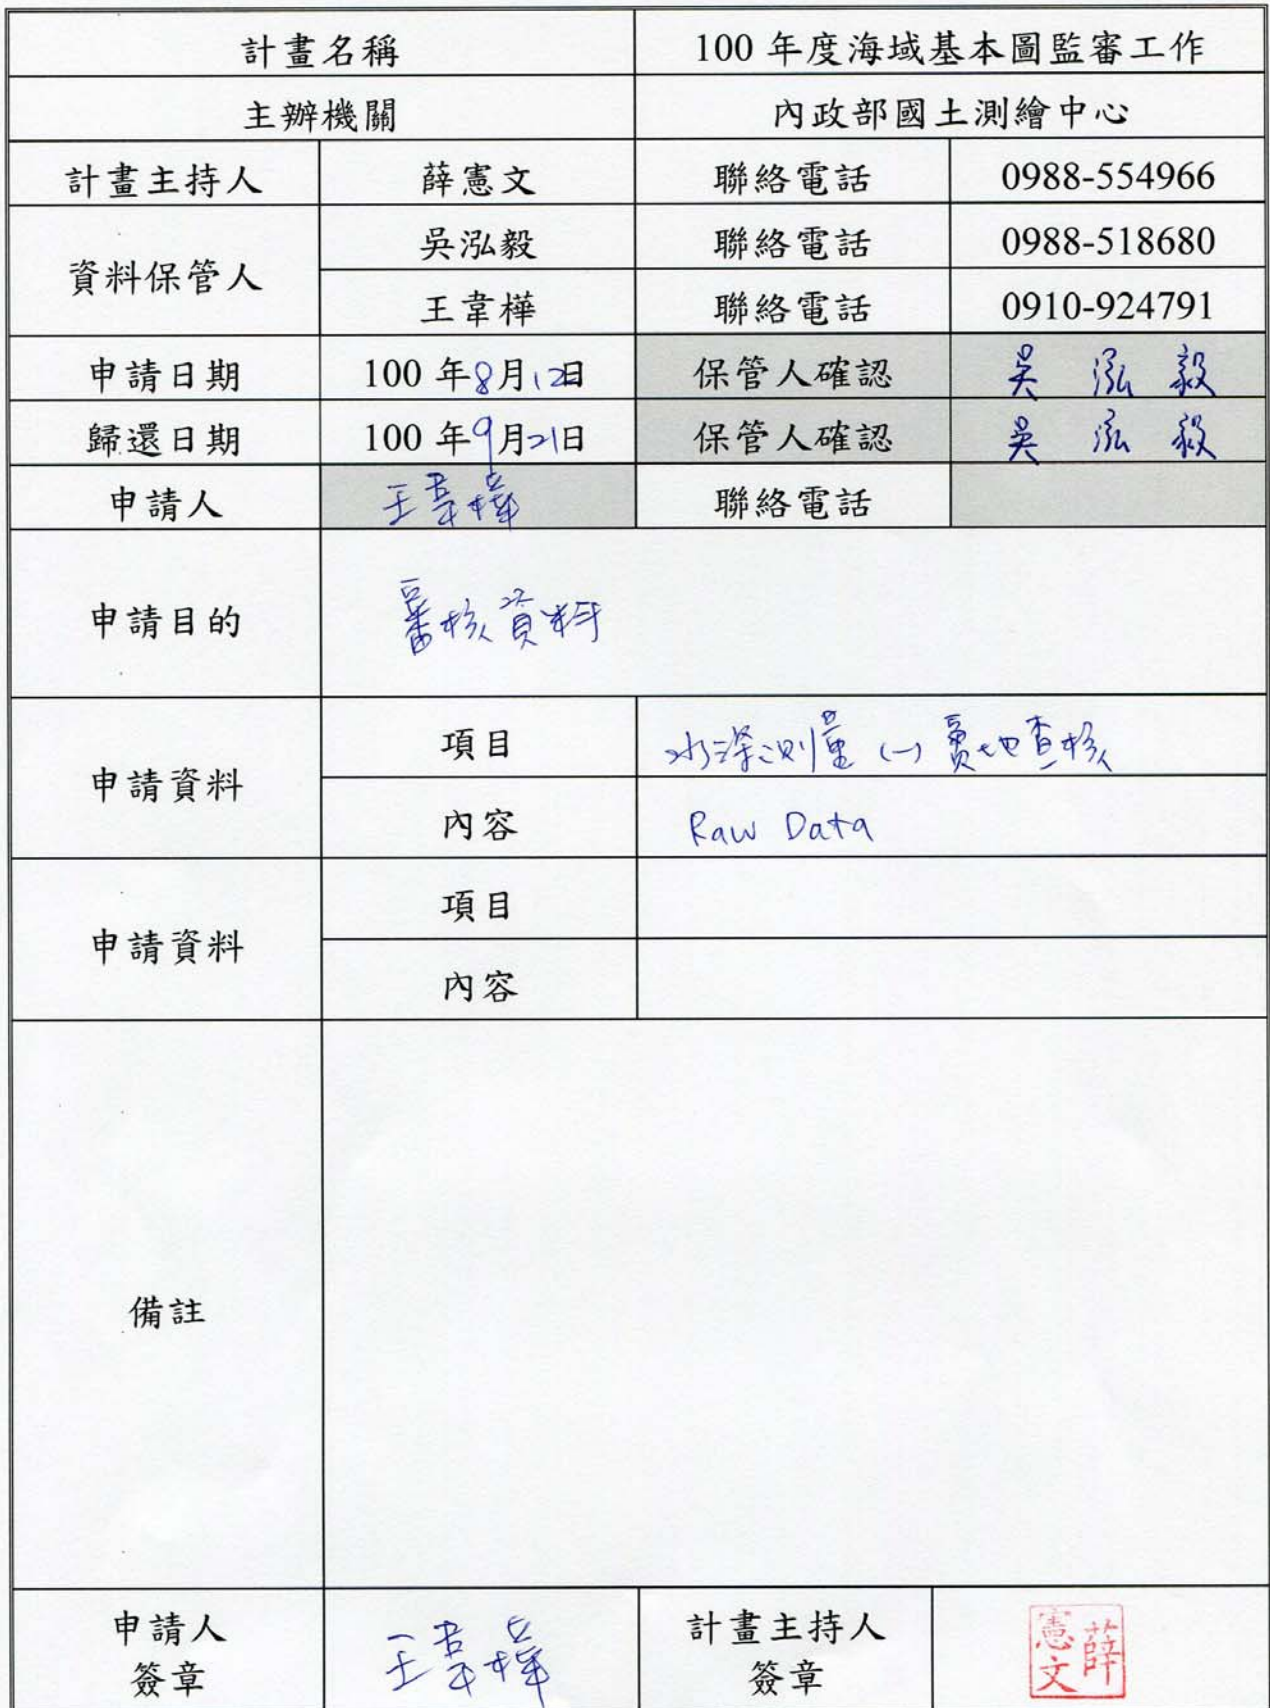 計畫名稱 100 年度海域基本圖監審工作
主辦機關 內政部國土測繪中心
計畫主持人 薛憲文 聯絡電話 0988-554966
資料保管人 吳泓毅 聯絡電話 0988-518680
王韋樺 聯絡電話 0910-924791
申請日期 100 年8月12日 保管人確認 吳泓毅
歸還日期 100 年9月21日 保管人確認 吳泓毅
申請人 王韋樺 聯絡電話
申請目的 審核資料
申請資料 項目 水深測量(一)實地查核
內容 Raw Data
申請資料 項目
內容
備註
申請人
簽章
王韋樺
計畫主持人
簽章
薛憲文